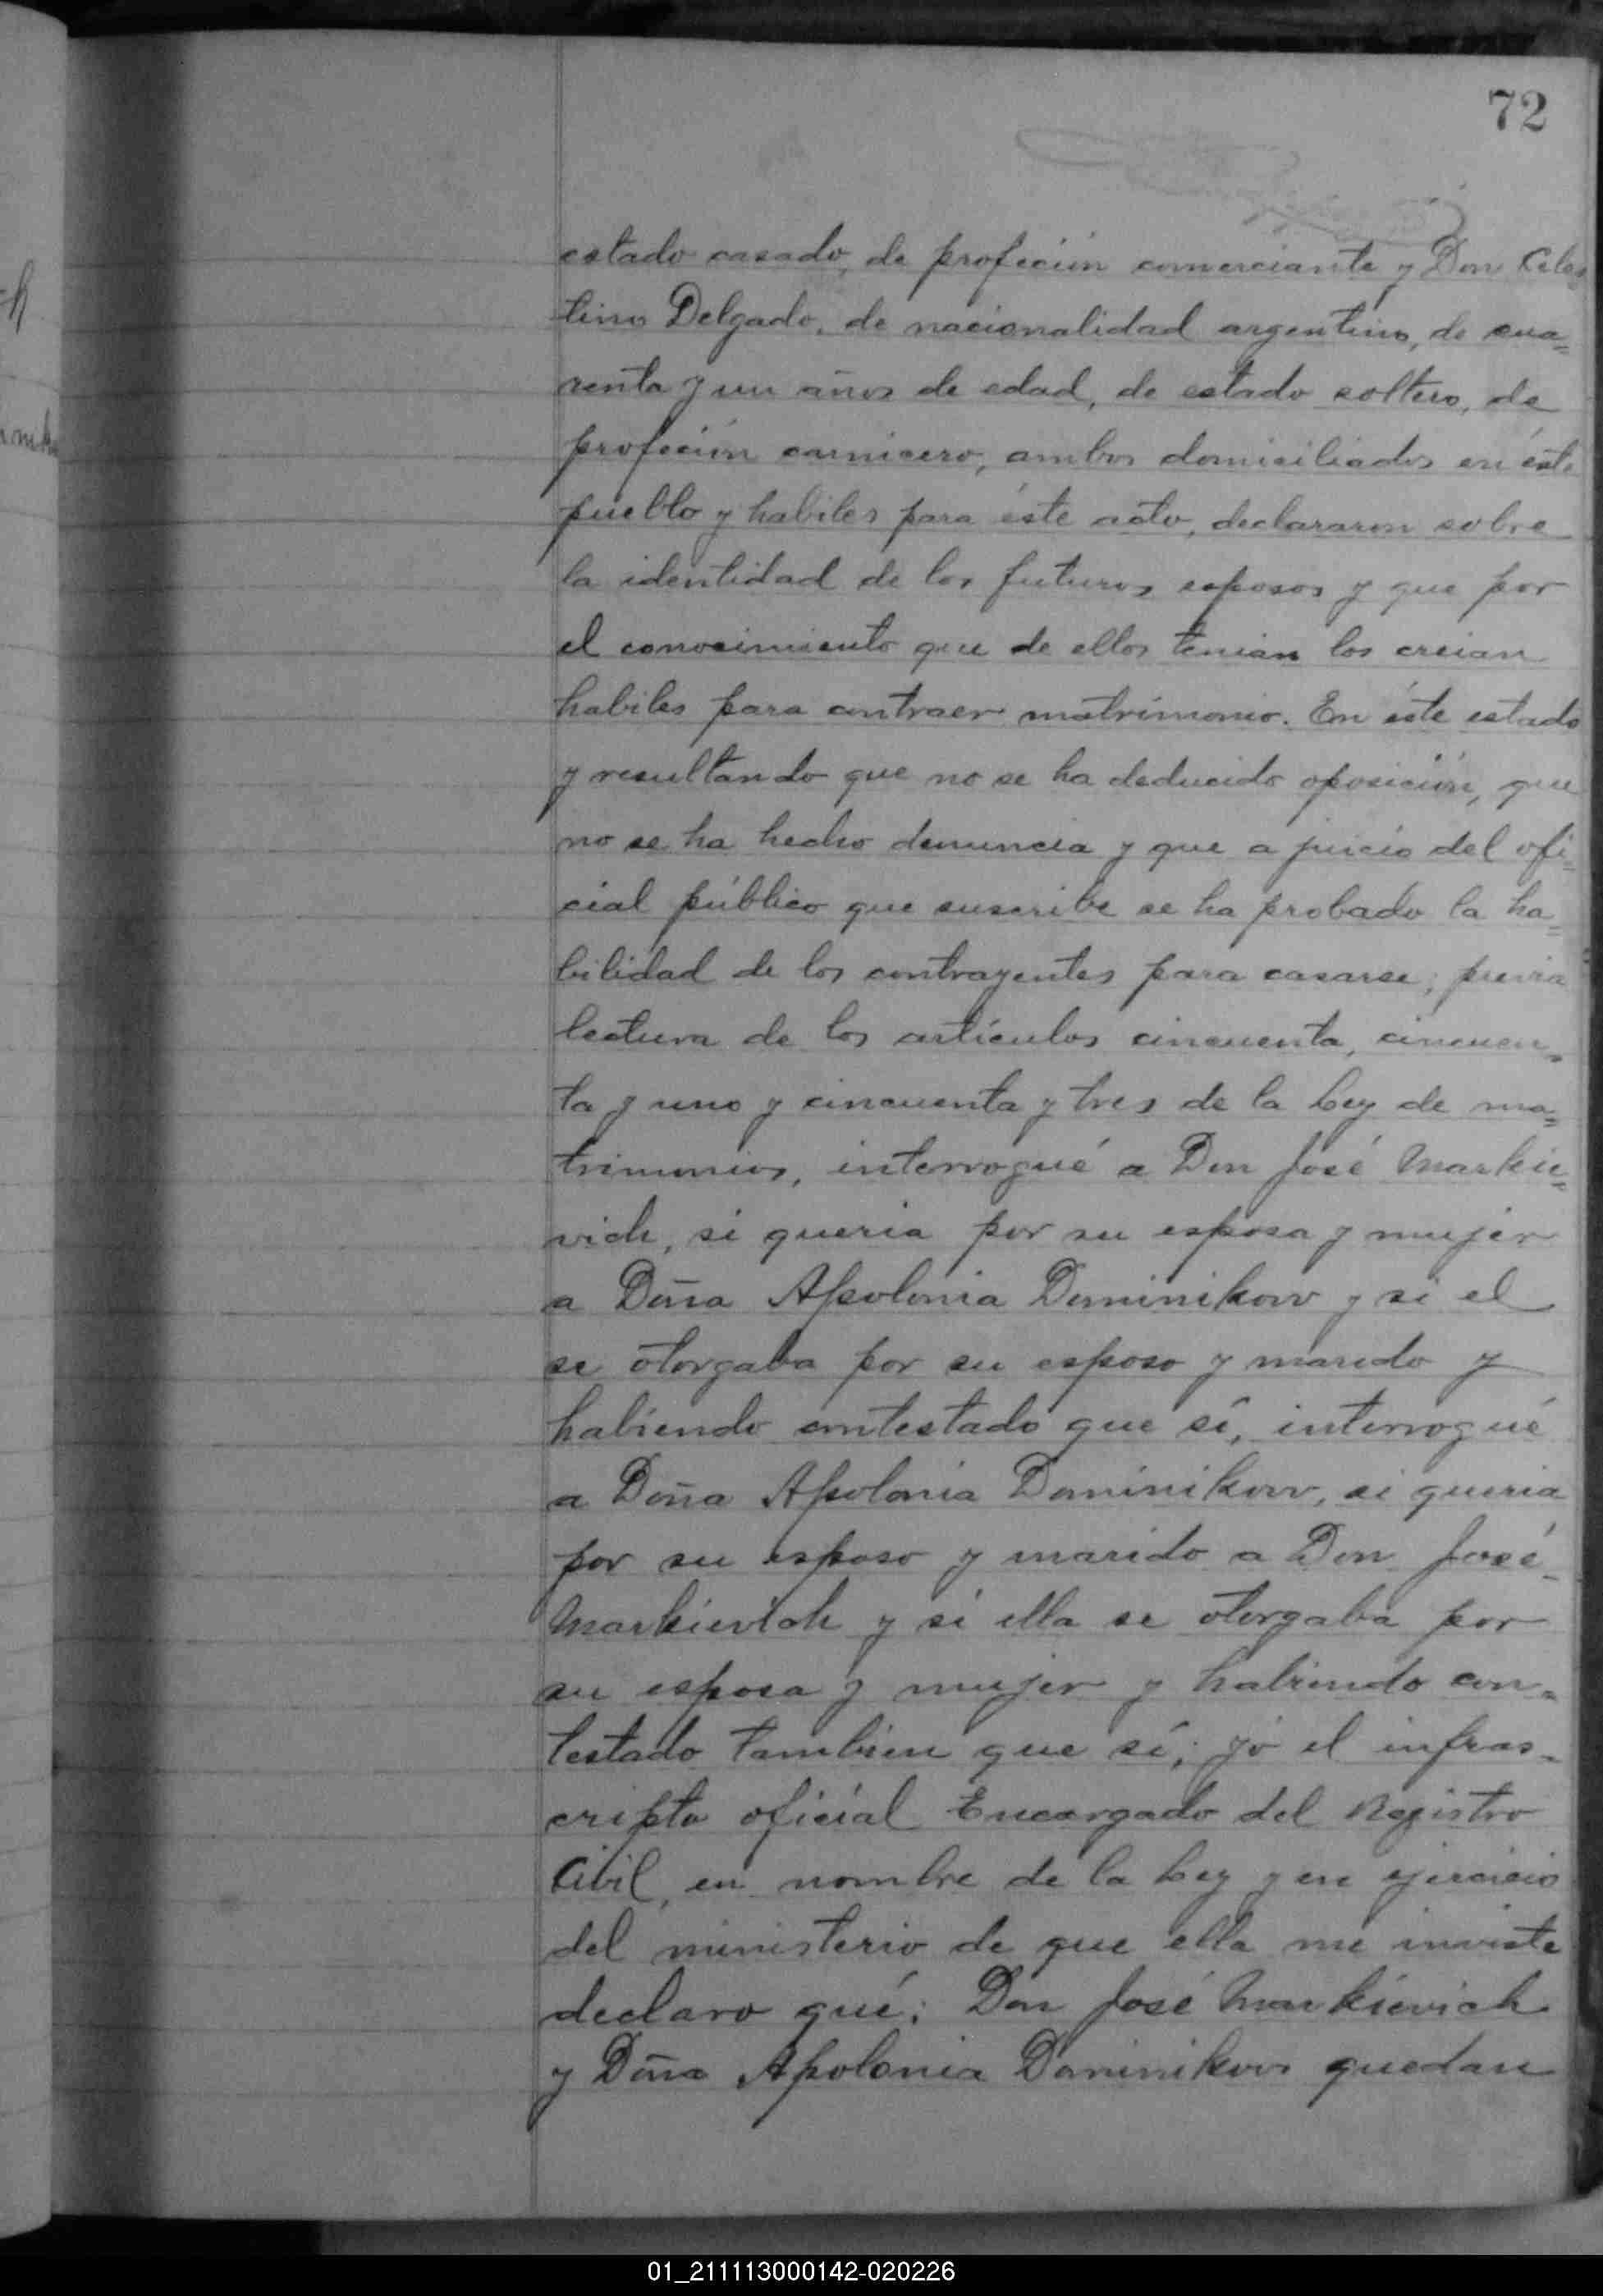 72
estado casado, de profeción comerciante y Don Celes=
tino Delgado, de nacionalidad argentino, de cua=
renta y un años de edad, de estado soltero, de
profeción carnicero, ambos domiciliados en éste
pueblo y habiles para éste acto, declararon sobre
la identidad de los futuros esposos y que por
el conocimiento que de ellos tenian los creian
habiles para contraer matrimonio. En éste estado
y resultando que no se ha deducido oposición, que
no se ha hecho denuncia y que a juicio del ofi=
cial público que suscribe se ha probado la ha=
bilidad de los contrayentes para casarse; previa
lectura de los artículos cincuenta, cincuen=
ta y uno y cincuenta y tres de la Ley de ma=
trimonios, interrogué a Don José Markie=
vich, si queria por su esposa y mujer
a Doña Apolonia Dominikow y si el
se otorgaba por su esposo y marido y
habiendo contestado que sí, interrogué
a Doña Apolonia Dominikow, si queria
por su esposo y marido a Don José
Markievich y si ella se otorgaba por
su esposa y mujer y habiendo con=
testado tambien que sí; yó el infras=
cripto oficial Encargado del Registro
Civil, en nombre de la Ley y en ejercicio
del ministerio de que ella me inviste
declaro qué: Don José Markievich
y Doña Apolonia Dominikow quedan
01_211113000142-020226